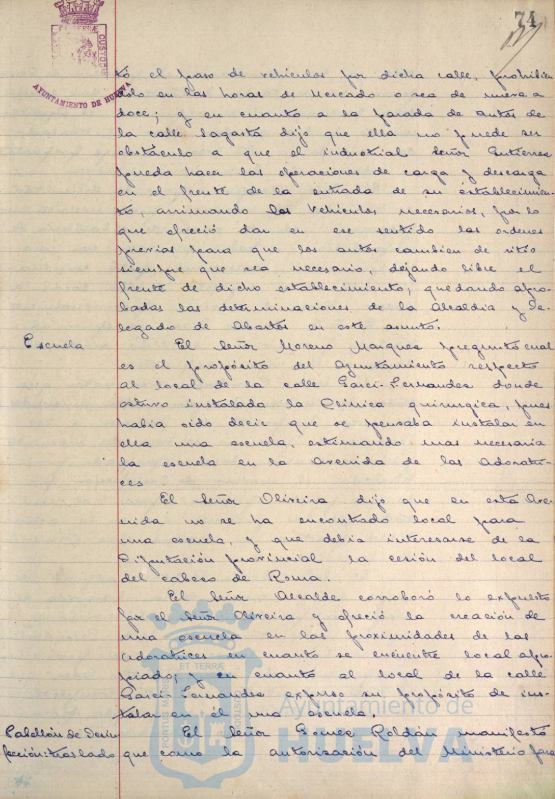 74
AYUNTAMIENTO DE HUELVA
tó el paso de vehículos por dicha calle, prohibien
dolo en las horas de Mercado o sea de nueve a
doce; y en cuanto a la parada de autos de
la calle Sagasta dijo que ella no puede ser
obstáculo a que el industrial Señor Gutierrez
pueda hacer las operaciones de carga y descarga
en el frente de la entrada de su establecimien-
to, arrimando los vehículos necesarios, por lo
que ofreció dar en ese sentido las ordenes
previas para que los autos cambien de sitio
siempre que sea necesario, dejando libre el
frente de dicho establecimiento; quedando apro-
badas las determinaciones de la Alcaldia y De-
legado de Abastos en este asunto.
Escuela
El Señor Moreno Marquez preguntó cual
es el propósito del Ayuntamiento respecto
al local de la calle Garci-Fernandez donde
estuvo instalada la Clínica quirurgica, pues
habia oido decir que se pensaba instalar en
ella una escuela, estimando mas necesaria
la escuela en la Avenida de las Adoratri-
ces
El Señor Oliveira dijo que en esta Ave
nida no se ha encontrado local para
una escuela, y que debia interesarse de la
Diputación provincial la cesión del local
del cabezo de Roma.
El Señor Alcalde corroboró lo expuesto
por el Señor Oliveira y ofreció la creación de
una escuela en las proximidades de las
Adoratrices en cuanto se encuentre local apro-
piado; y en cuanto al local de la calle
Garci-Fernandez expuso su propósito de ins-
talar en él una escuela.
Pabellón de Desin
fección: traslado
El Señor Gomez Roldán manifestó
que como la autorización del Ministerio para
Ayuntamiento de
HUELVA